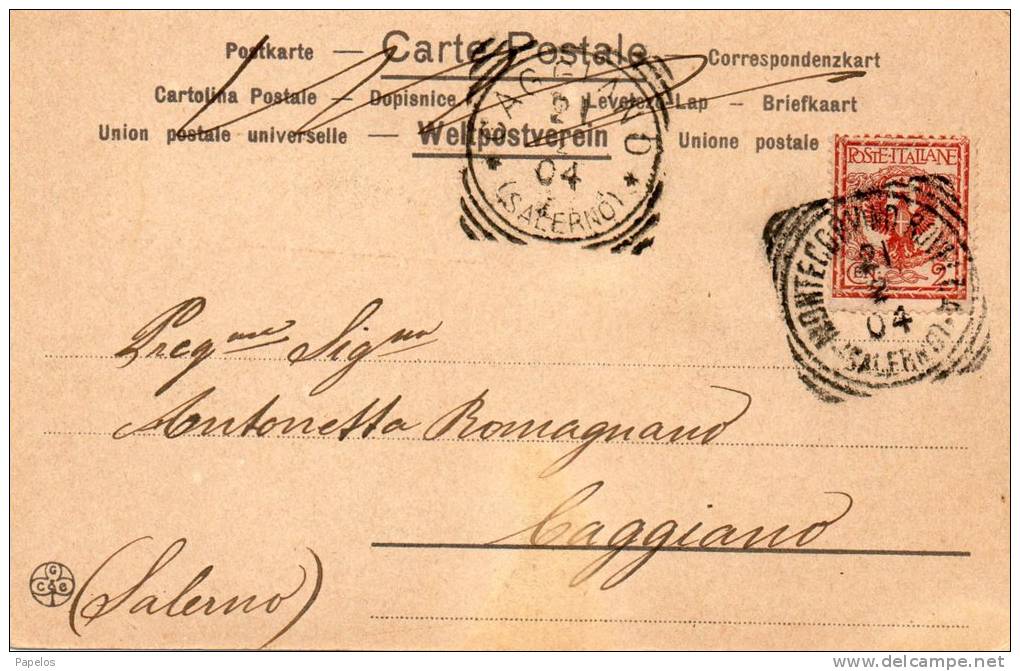 Postkarte — Carte Postale — Correspondenzkart
Cartolina Postale — Dopisnice — Levelező-Lap — Briefkaart
Union postale universelle — Weltpostverein — Unione postale
CAGGIANO
21
2
04
(SALERNO)
POSTE·ITALIANE
CENT. 2
MONTECORVINO ROVELLA
21
2
04
(SALERNO)
Preg.ma Sig.na
Antonetta Romagnano
Caggiano
(Salerno)
G
C G
Papelos
delcampe.net